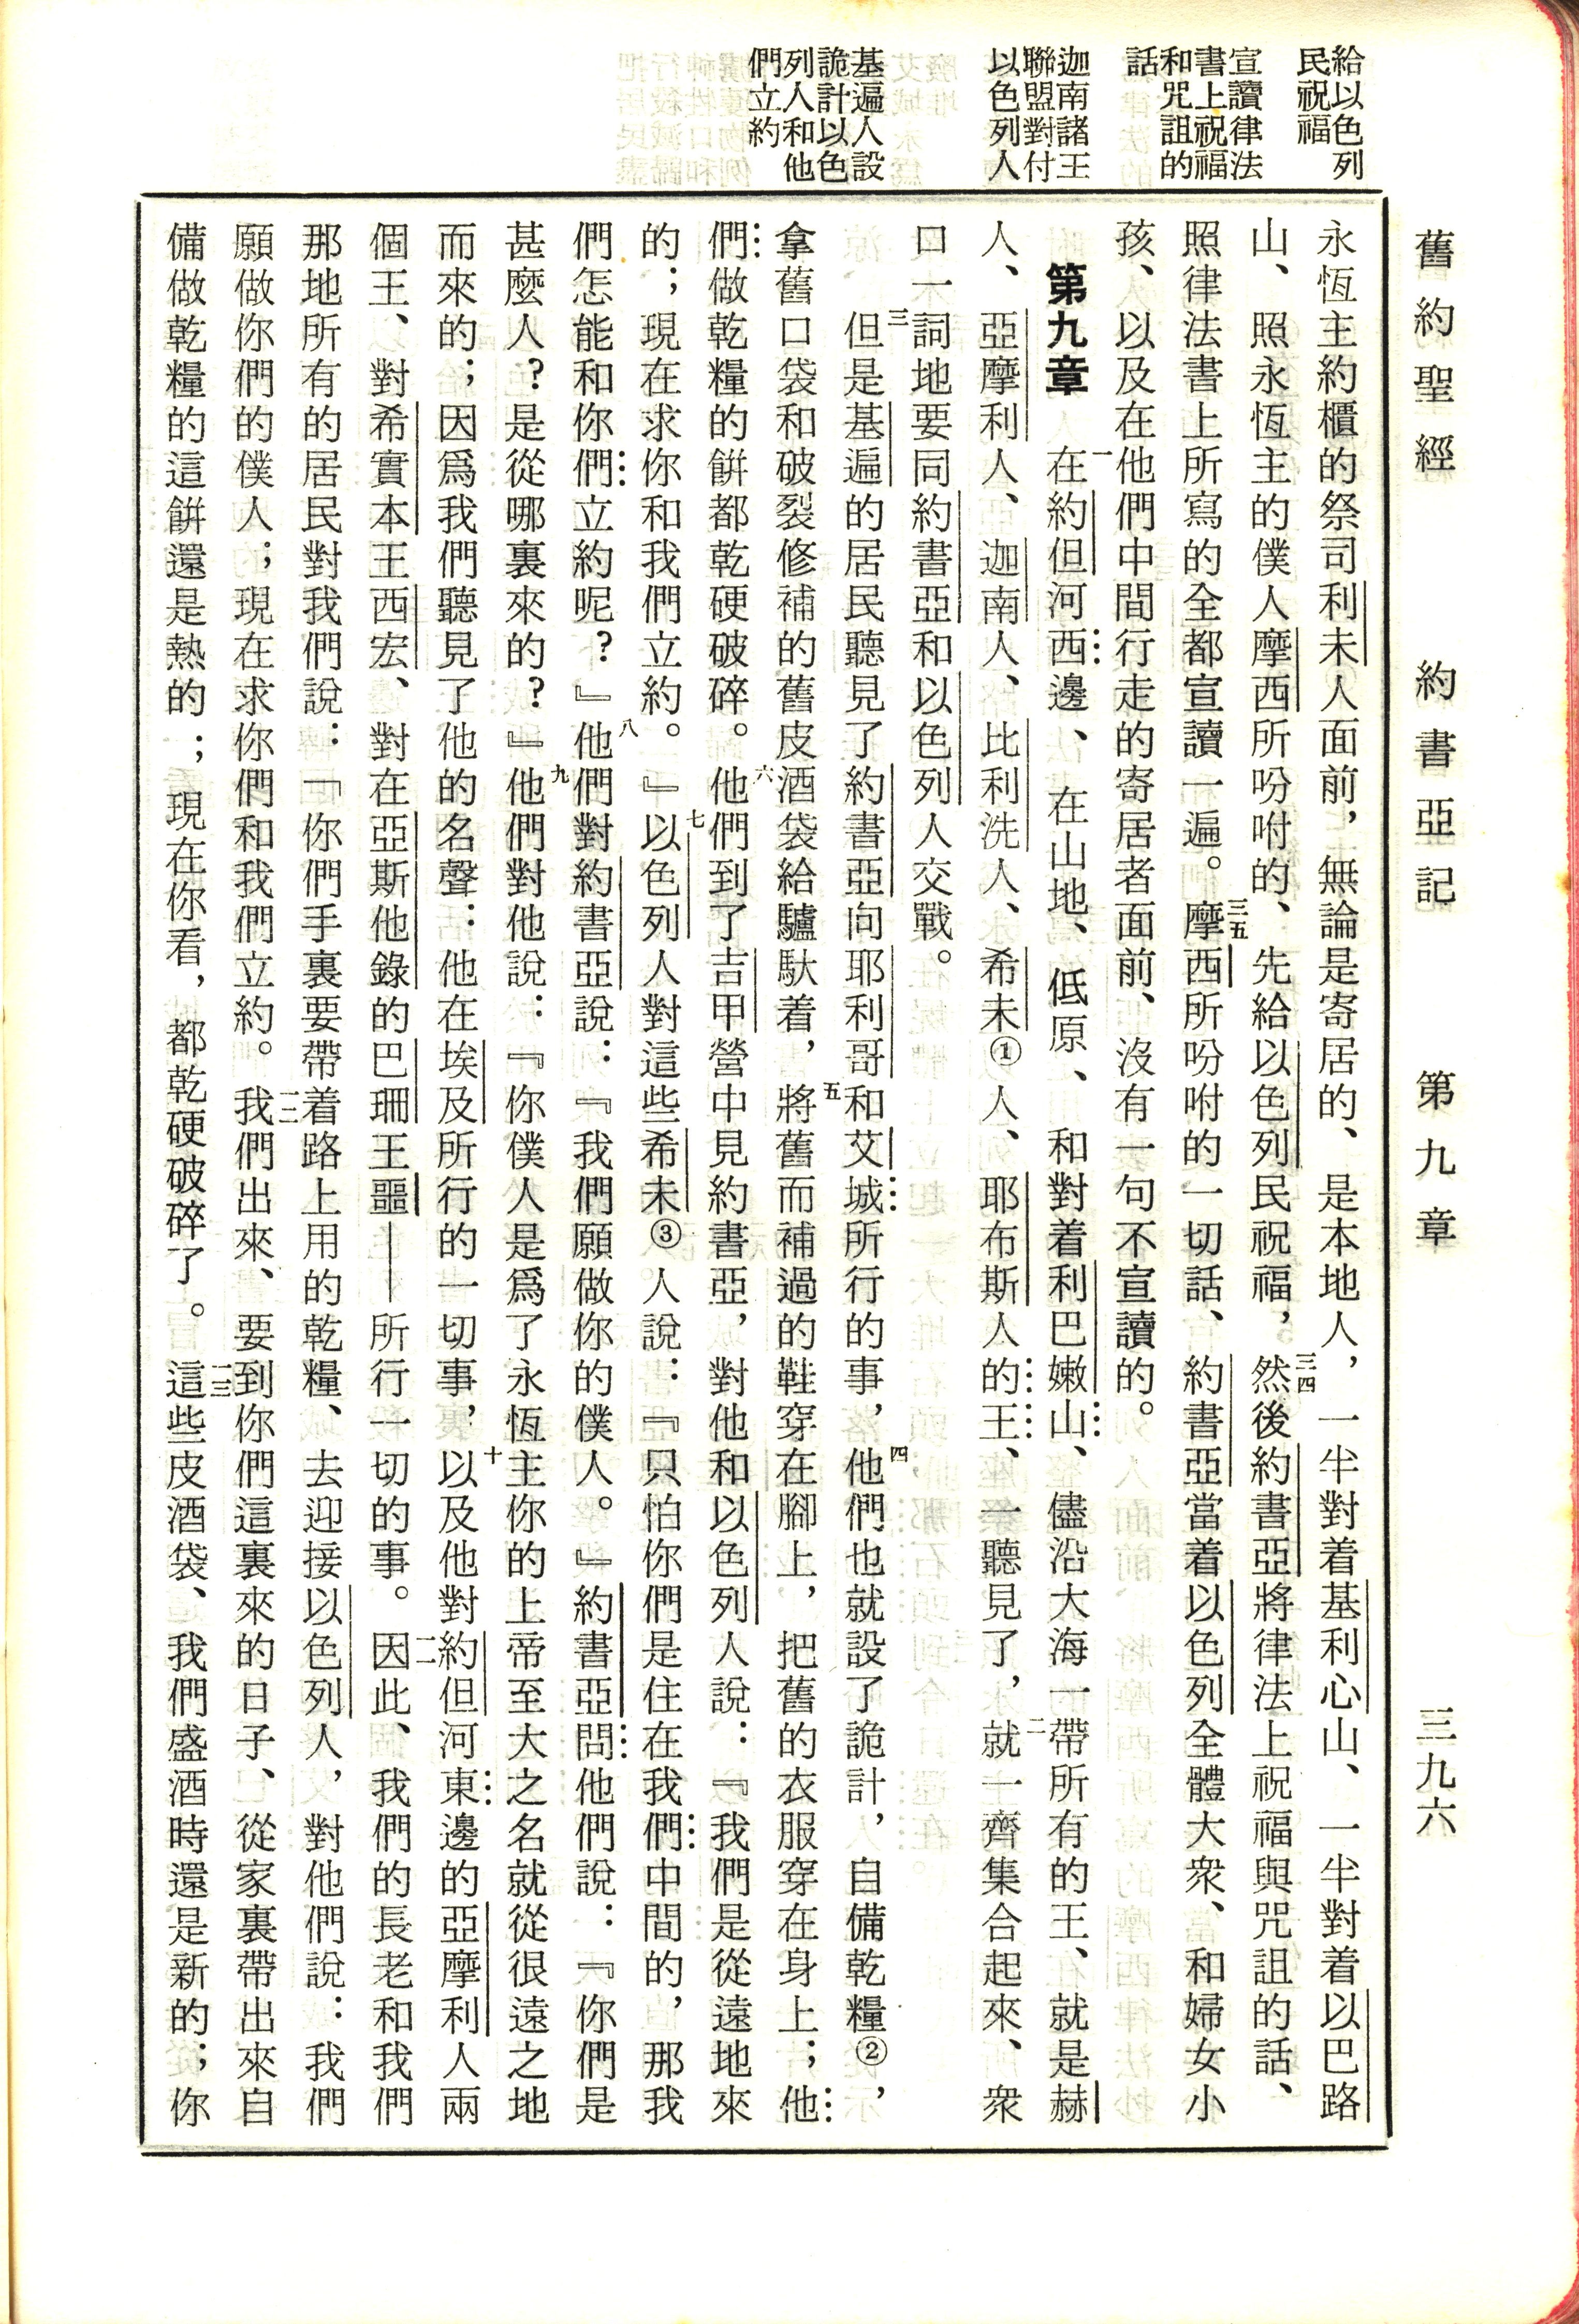 舊約聖經 約書亞記 第九章 三九六
給以色列
民祝福
宣讀律法
書上祝福
和咒詛的
話
迦南諸王
聯盟對付
以色列人
基遍人設
詭計以色
列人和他
們立約
永恆主約櫃的祭司利未人面前，無論是寄居的、是本地人，一半對着基利心山、一半對着以巴路
山、照永恆主的僕人摩西所吩咐的、先給以色列民祝福，三四然後約書亞將律法上祝福與咒詛的話、
照律法書上所寫的全都宣讀一遍。三五摩西所吩咐的一切話、約書亞當着以色列全體大衆、和婦女小
孩、以及在他們中間行走的寄居者面前、沒有一句不宣讀的。
第九章 一在約但河西邊、在山地、低原、和對着利巴嫩山、儘沿大海一帶所有的王、就是赫
人、亞摩利人、迦南人、比利洗人、希未①人、耶布斯人的王、一聽見了，二就一齊集合起來、衆
口一詞地要同約書亞和以色列人交戰。
三但是基遍的居民聽見了約書亞向耶利哥和艾城所行的事，四他們也就設了詭計，自備乾糧②，
拿舊口袋和破裂修補的舊皮酒袋給驢馱着，五將舊而補過的鞋穿在腳上，把舊的衣服穿在身上；他
們做乾糧的餅都乾硬破碎。六他們到了吉甲營中見約書亞，對他和以色列人說：『我們是從遠地來
的；現在求你和我們立約。』七以色列人對這些希未③人說：『只怕你們是住在我們中間的，那我
們怎能和你們立約呢？』八他們對約書亞說：『我們願做你的僕人。』約書亞問他們說：『你們是
甚麼人？是從哪裏來的？』九他們對他說：『你僕人是爲了永恆主你的上帝至大之名就從很遠之地
而來的；因爲我們聽見了他的名聲：他在埃及所行的一切事，十以及他對約但河東邊的亞摩利人兩
個王、對希實本王西宏、對在亞斯他錄的巴珊王噩——所行一切的事。一一因此、我們的長老和我們
那地所有的居民對我們說：「你們手裏要帶着路上用的乾糧、去迎接以色列人，對他們說：我們
願做你們的僕人；現在求你們和我們立約。一二我們出來、要到你們這裏來的日子、從家裏帶出來自
備做乾糧的這餅還是熱的；現在你看，都乾硬破碎了。一三這些皮酒袋、我們盛酒時還是新的；你